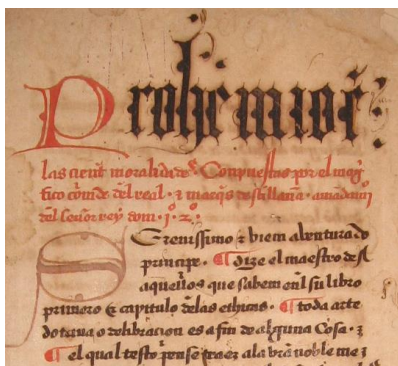 Prohemio
las cient moralidades Conpuestas por el mag
fico conde del real · & marqs de stillana · a madmi
del señor rey dom · i° · 2° ·
Serenissimo & biem abenturado
principe · ¶ dize el maestro de
aquellos que sabem enl su libro
primero & capitulo delas ethicas · ¶ toda arte
dotrina o delibracion es a fin de alguna Cosa · &
¶ el qual testo pense traer ala bra noble me